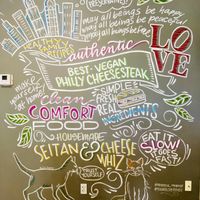 may all beings be happy
may all beings be peaceful
may all beings be free
HEALTHY
FAMILY
RECIPES
authentic
LOVE
BEST VEGAN
PHILLY CHEESESTEAK
make
yourself
at
home
Clean
SIMPLE
FRESH
real
INGREDIENTS
COMFORT
FOOD
HOUSEMADE
SEITAN & CHEESE
WHIZ
EAT IT
SLOW!
IT GOES
FAST
TREAT
YOURSELF